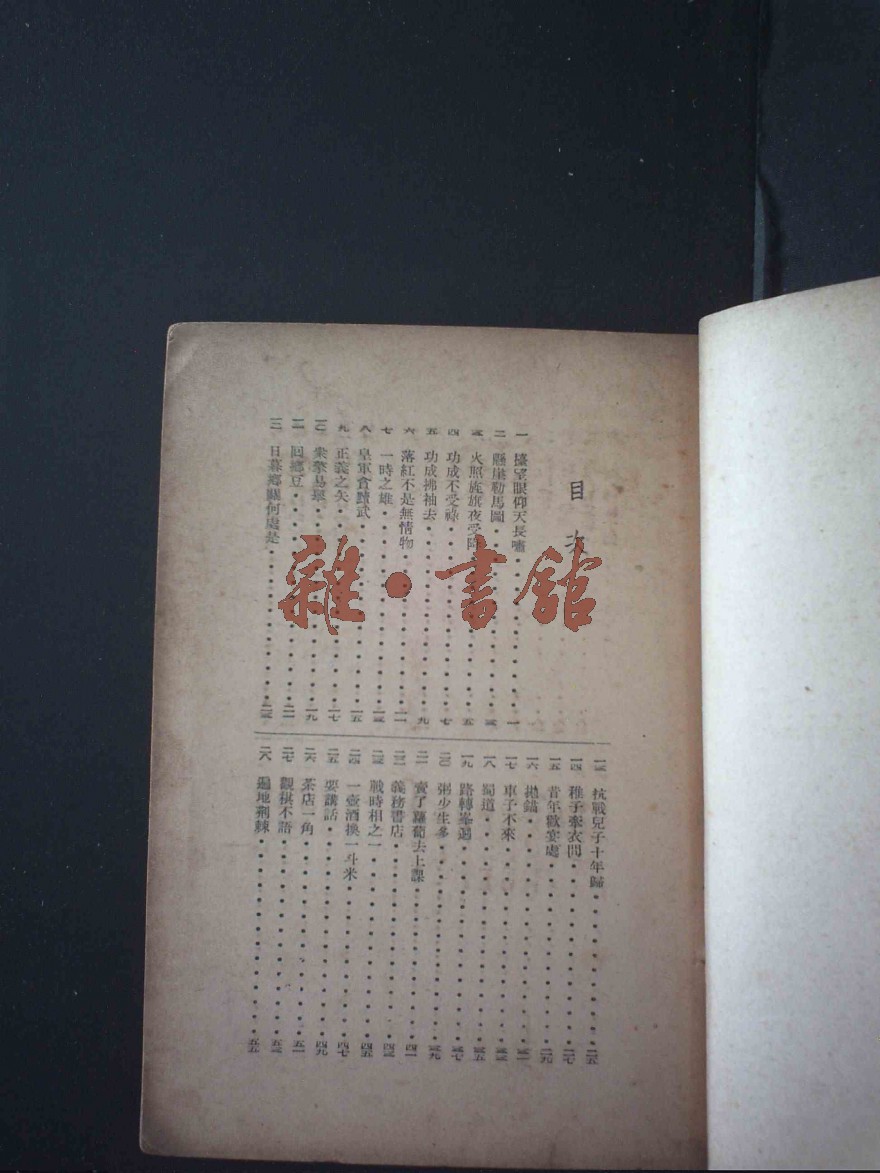 目次
一 擡望眼仰天長嘯 一
二 懸崖勒馬圖 三
三 火照旌旗夜受降 五
四 功成不受祿 七
五 功成拂袖去 九
六 落紅不是無情物 一一
七 一時之雄 一三
八 皇軍會黷武 一五
九 正義之矢 一七
一〇 衆擎易舉 一九
一一 回鄉豆 二一
一二 日暮鄉關何處是 二三
一三 抗戰兒子十年歸 二五
一四 稚子牽衣問 二七
一五 昔年歡宴處 二九
一六 拋錨 三一
一七 車子不來 三三
一八 蜀道 三五
一九 路轉峯迴 三七
二〇 粥少生多 三九
二一 賣了蘿蔔去上課 四一
二二 義務書店 四三
二三 戰時相之一 四五
二四 一壺酒換一斗米 四七
二五 要講話 四九
二六 茶店一角 五一
二七 觀棋不語 五三
二八 遍地荊棘 五五
雜·書館